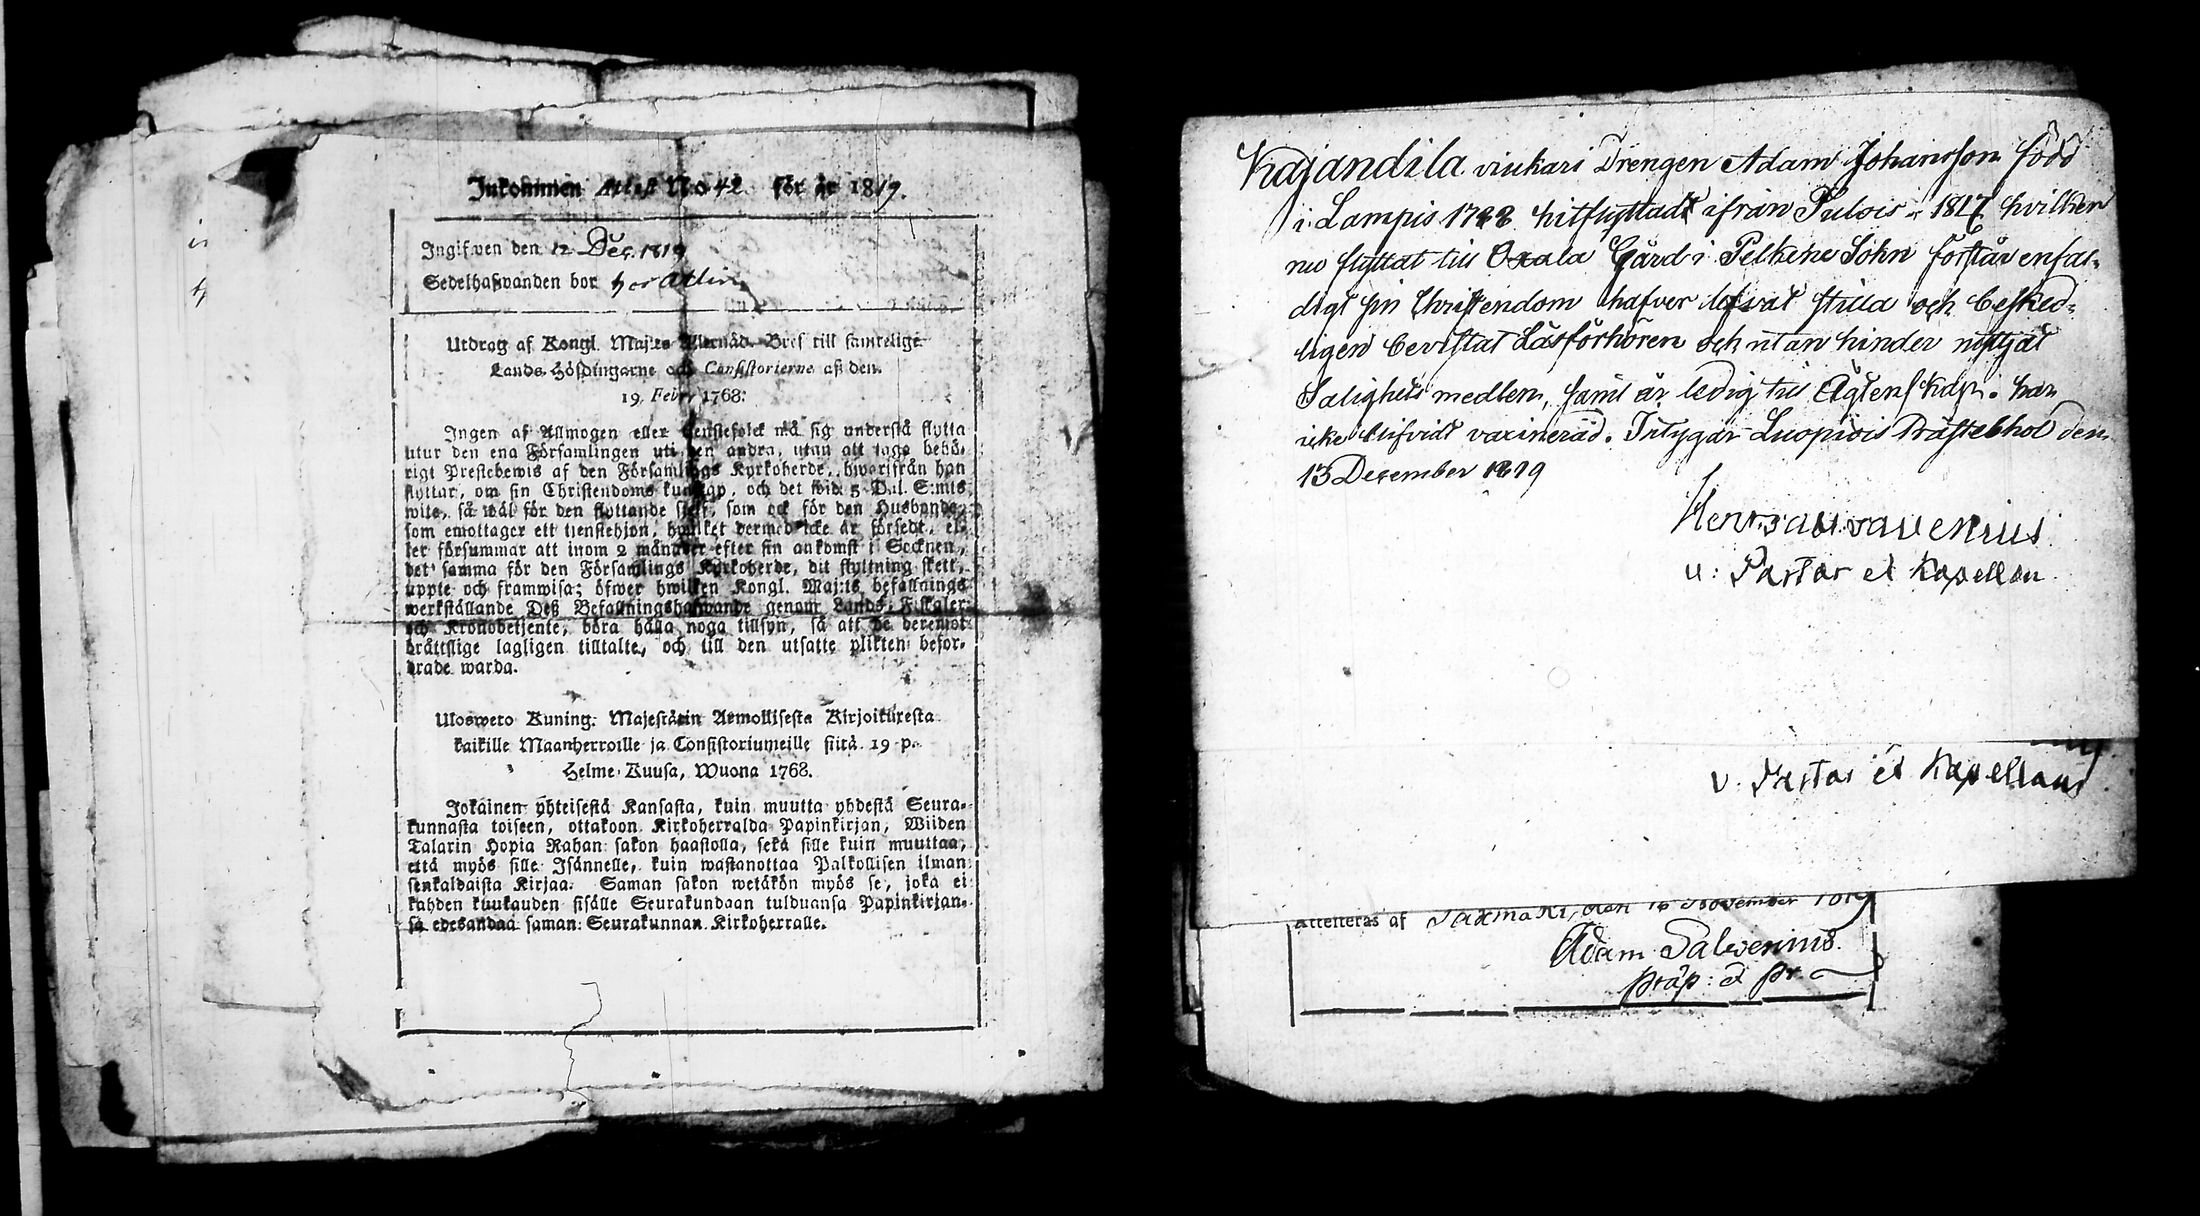 Inkommen Attest No 42 för år 1819.
Ingifwen den 12 Dec. 1819
Sedelhafwanden bor
Utdrag af Kongl. Maj:ts Allernåd. Bref till samtelige
Lands-Höfdingarne och Consistorierne af den
19 Febr. 1768.
Ingen af Allmogen eller tienstefolck må sig understå flytta
utur den ena Församlingen uti den andra, utan att taga behö-
rigt Prestebewis af den Församlings Kyrkoherde, hwarifrån han
flyttar, om sin Christendoms kunskap, och det wid 5 Dal. S:mts
wite, så wäl för den flyttande sielf, som ock för den Husbonde,
som emottager ett tienstehjon, hwilket dermed icke är försedt, el-
ler försummar att inom 2 månader efter sin ankomst i Socknen,
det samma för den Församlings Kyrkoherde, dit flyttning skett,
uppte och framwisa; öfwer hwilken Kongl. Maj:ts befallnings
werkställande Deß Befallningshafwande genom Lands-Fiskaler
och Kronobetjente, böra hålla noga tillsyn, så att de deremot
bråttslige lagligen tilltalte, och till den utsatte plikten befor-
drade warda.
Ulosweto Kuning. Majestätin Aemollisesta Kirjoituxesta
kaikille Maanherroille ja Consistoriumeille siitä 19 p.
Helme-Kuusa, Wuona 1768.
Jokainen yhteisestä Kansasta, kuin muutta yhdestä Seura-
kunnasta toiseen, ottakoon Kirkoherralda Papinkirjan, Wiiden
Talarin Hopia Rahan sakon haastolla, sekä sille kuin muuttaa,
että myös sille Isännelle, kuin wastanottaa Palkollisen ilman
senkaldaista Kirjaa. Saman sakon wetäkön myös se, joka ei
kahden kuukauden sisälle Seurakundaan tulduansa Papinkirjan-
sa edesandaa saman Seurakunnan Kirkoherralle.
Kajandila vinkari Drengen Adam Johansson född
i Lampis 1788 hitflyttadt ifrån Tulois 1817 hvilken
nu flyttat till Oxala Gård i Pelkene Sokn förstår enfal-
digt sin Christendom hafver lefvat stilla och besked-
ligen bevistat Läsförhören och utan hinder nyttjat
Salighets medlen, samt är ledig till Ägtenskap. har
icke blifvidt vaxinerad. Intygar Luopiois Prästebhol den
13 December 1819
v: Pastor et Kapellan
v. Pastor et Kapellan
Attesteras af Saxmaki, den 16 November 1819
Adam Salvenius.
Präp: et Pr.